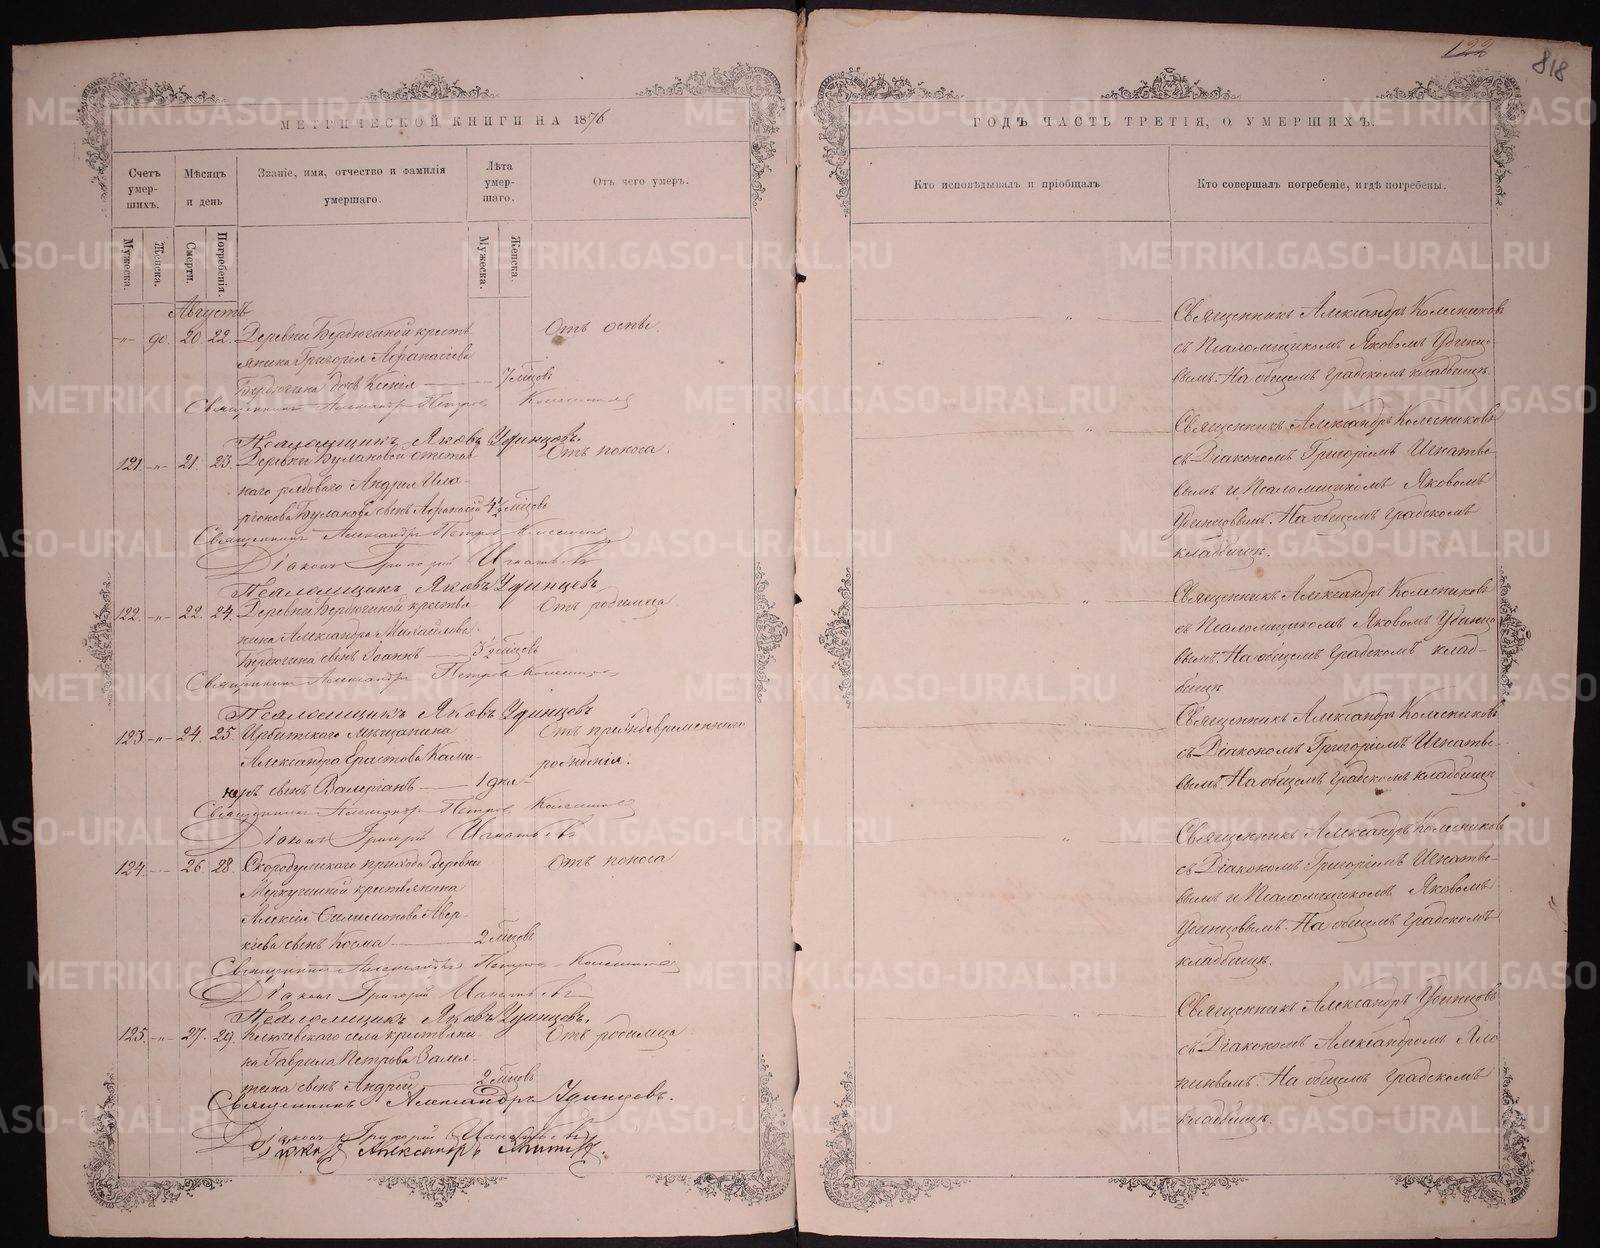 122
818
МЕТРИЧЕСКОЙ КНИГИ НА 1876
ГОДЪ ЧАСТЬ ТРЕТІЯ, О УМЕРШИХЪ.
Счетъ умер-шихъ.
Мѣсяцъ и день
Званіе, имя, отчество и фамилія умершаго.
Лѣта умер-шаго.
Отъ чего умеръ.
Кто исповѣдывалъ и пріобщалъ
Кто совершалъ погребеніе, и гдѣ погребены.
Мужеска.
Женска.
Смерти.
Погребенія.
Мужеска.
Женска.
Августъ
-"- 90. 20. 22. Деревни Бердюгиной кресть-
янина Григорія Аѳанасіева
Бердюгина дочь Ксенія 7 мѣсцовъ
Отъ оспы
Священникъ Александръ Петровъ Колесниковъ
Псаломщикъ Яковъ Удинцовъ.
121. -"- 21. 23. Деревни Булановой отстав-
наго рядоваго Андрея Ила-
ріонова Буланова сынъ Аѳанасій 4½ мѣсцовъ
Отъ поноса.
Священникъ Александръ Петровъ Колесниковъ
Діаконъ Григорій Игнатьевъ
Псаломщикъ Яковъ Удинцевъ
122. -"- 22. 24. Деревни Бердюгиной крестья-
нина Александра Михаилова
Бердюгина сынъ Іоаннъ 3½ мѣсцовъ
Отъ родимца
Священникъ Александръ Петровъ Колесниковъ
Псаломщикъ Яковъ Удинцевъ
123. -"- 24. 25. Ирбитскаго мѣщанина
Александра Ерастова
сынъ Валеріанъ 1 дня
Отъ преждевременнаго
рожденія.
Священникъ Александръ Петровъ Колесниковъ
Діаконъ Григорій Игнатьевъ
124. -"- 26. 28. Скородумскаго прихода деревни
Меркушиной крестьянина
Алексія Филимонова Авер-
кіева сынъ Косма 2 мѣсцовъ
Отъ поноса
Священникъ Александръ Петровъ Колесниковъ
Діаконъ Григорій Игнатьевъ
Псаломщикъ Яковъ Удинцовъ.
125. -"- 27. 29. Ключевскаго села крестьяни-
на Гавріила Петрова
сынъ Андрей 2 мѣсцовъ
Отъ родимца
Священникъ Александръ Удинцовъ.
Діаконъ Григорій Игнатьевъ
Діаконъ Александръ
Священникъ Александръ Колесниковъ
съ Псаломщикомъ Яковомъ Удинцо-
вымъ. На общемъ градскомъ кладбищѣ.
Священникъ Александръ Колесниковъ
съ Діакономъ Григоріемъ Игнатье-
вымъ и Псаломщикомъ Яковомъ
Удинцовымъ. На общемъ градскомъ
кладбищѣ.
Священникъ Александръ Колесниковъ
съ Псаломщикомъ Яковомъ Удинцо-
вымъ. На общемъ градскомъ клад-
бищѣ
Священникъ Александръ Колесниковъ
съ Діакономъ Григоріемъ Игнатье-
вымъ. На общемъ градскомъ кладбищѣ
Священникъ Александръ Колесниковъ
съ Діакономъ Григоріемъ Игнатье-
вымъ и Псаломщикомъ Яковомъ
Удинцовымъ. На общемъ градскомъ
кладбищѣ.
Священникъ Александръ Удинцовъ
съ Діакономъ Александромъ
На общемъ градскомъ
кладбищѣ.
METRIKI.GASO-URAL.RU